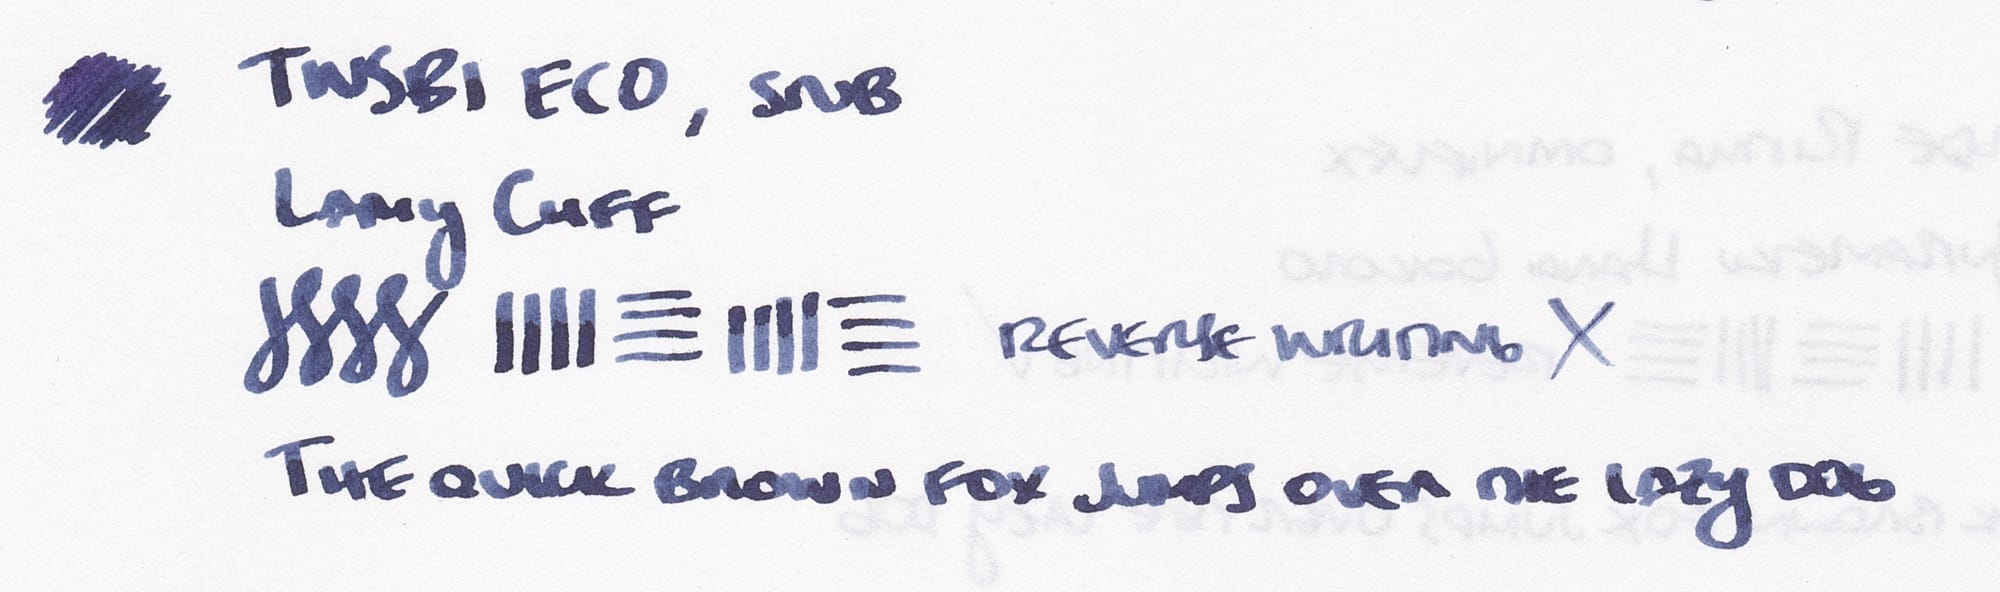 TWSBI ECO, SNUB
Lamy Cliff
REVERSE WRITING X
THE QUICK BROWN FOX JUMPS OVER THE LAZY DOG